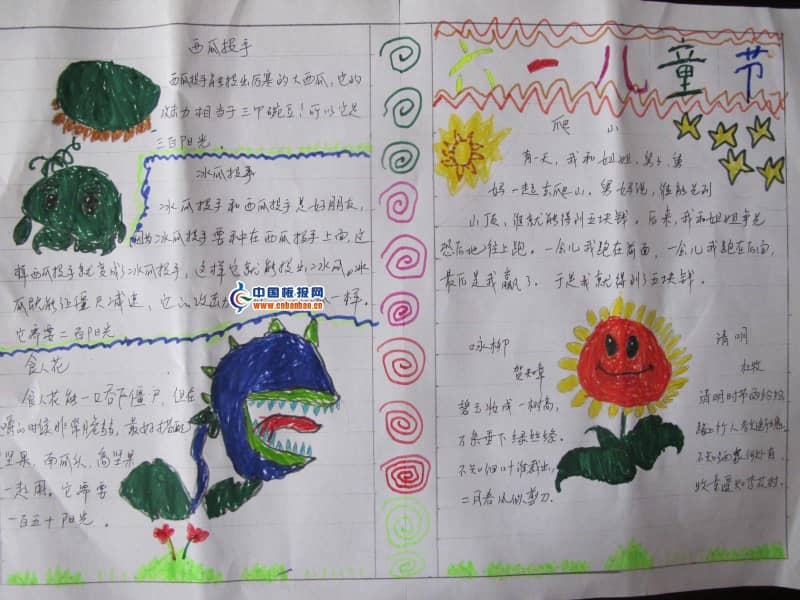 西瓜投手
西瓜投手能投出厉害的大西瓜，它的
攻击力相当于三个豌豆！所以它是
三百阳光。
冰瓜投手
冰瓜投手和西瓜投手是好朋友，
因为冰瓜投手要种在西瓜投手上面，这
样西瓜投手就变成了冰瓜投手，这样它就能投出冰瓜。冰
瓜既能让僵尸减速，它的攻击力 一样。
它需要二百阳光
食人花
食人花能一口吞下僵尸，但在
嚼的时候非常脆弱，最好搭配
坚果、南瓜头、高坚果
一起用。它需要
一百五十阳光。
中国板报网
www.cnbanbao.cn
六一儿童节
爬山
有一天，我和姐姐、舅舅、舅
妈一起去爬山，舅妈说，谁能先到
山顶，谁就能得到五块钱。后来，我和姐姐争先
恐后地往上跑。一会儿我跑在前面，一会儿我跑在后面，
最后是我赢了。于是我就得到了五块钱。
咏柳
贺知章
碧玉妆成一树高，
万条垂下绿丝绦。
不知细叶谁裁出，
二月春风似剪刀。
清明
杜牧
清明时节雨纷纷
路上行人欲断魂。